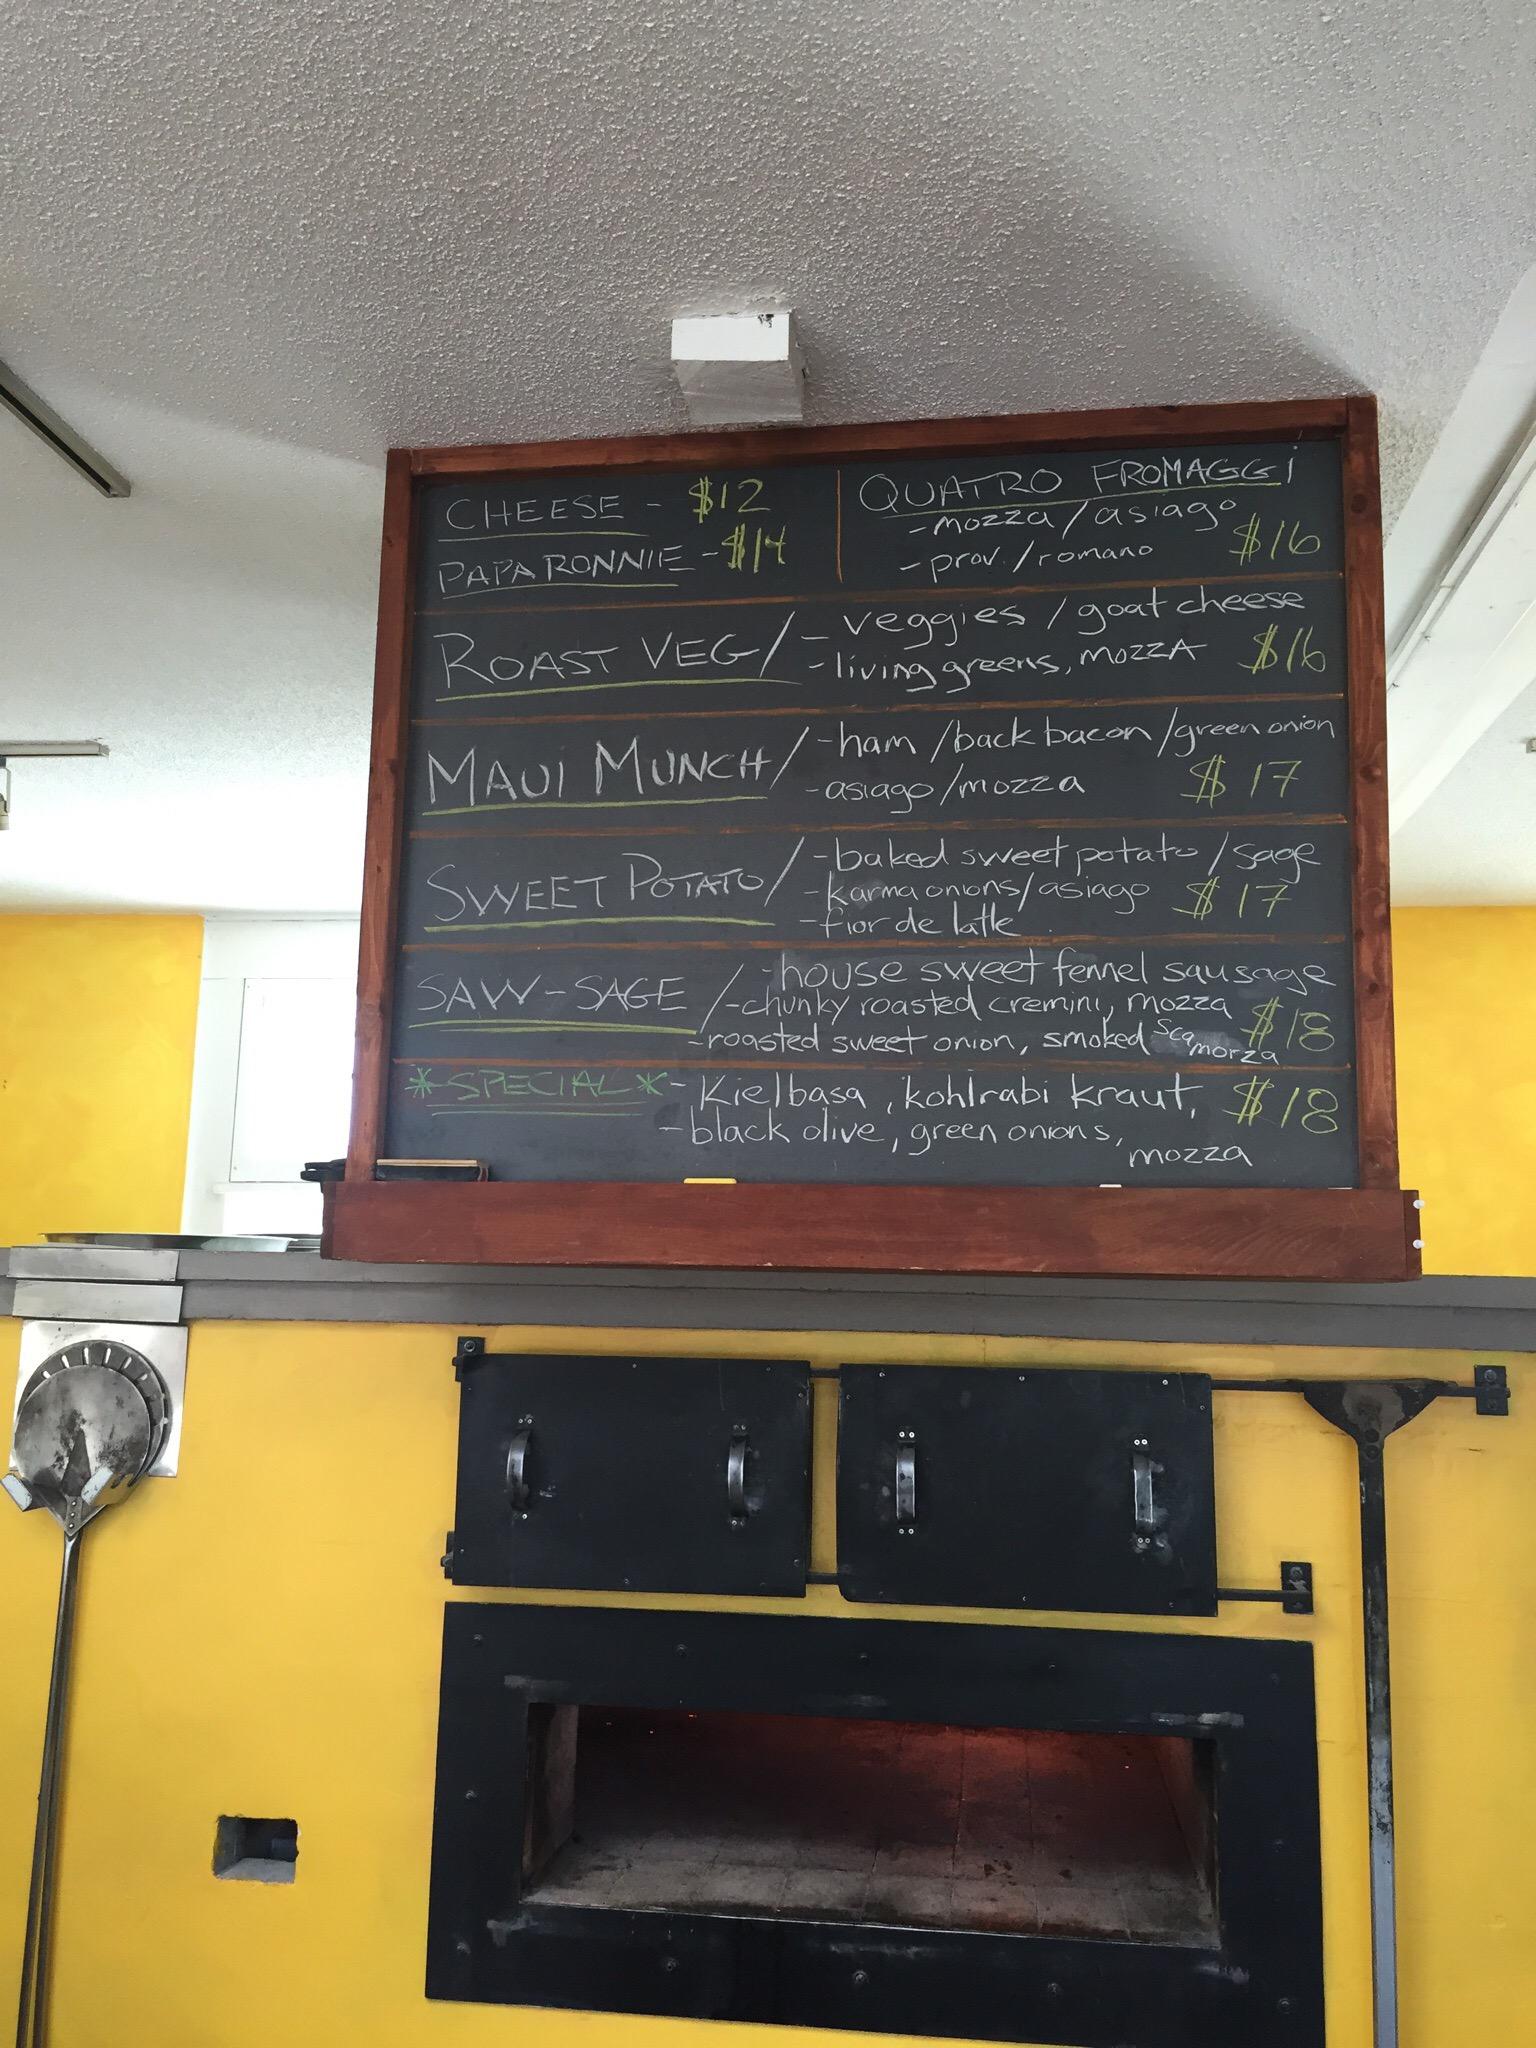 CHEESE - $12
PAPA RONNIIE - $14
QUATRO FROMAGGI
- mozza / asiago
- prov. / romano $16
ROAST VEG / - veggies / goat cheese
- living greens, mozza $16
MAUI MUNCH / - ham / back bacon / green onion
- asiago / mozza $17
SWEET POTATO / - baked sweet potato / sage
- karma onions / asiago $17
- fior de latte
SAW-SAGE / - house sweet fennel sausage
- chunky roasted cremini, mozza $18
- roasted sweet onion, smoked scamorza
*SPECIAL* - Kielbasa, kohlrabi kraut, $18
- black olive, green onions,
mozza